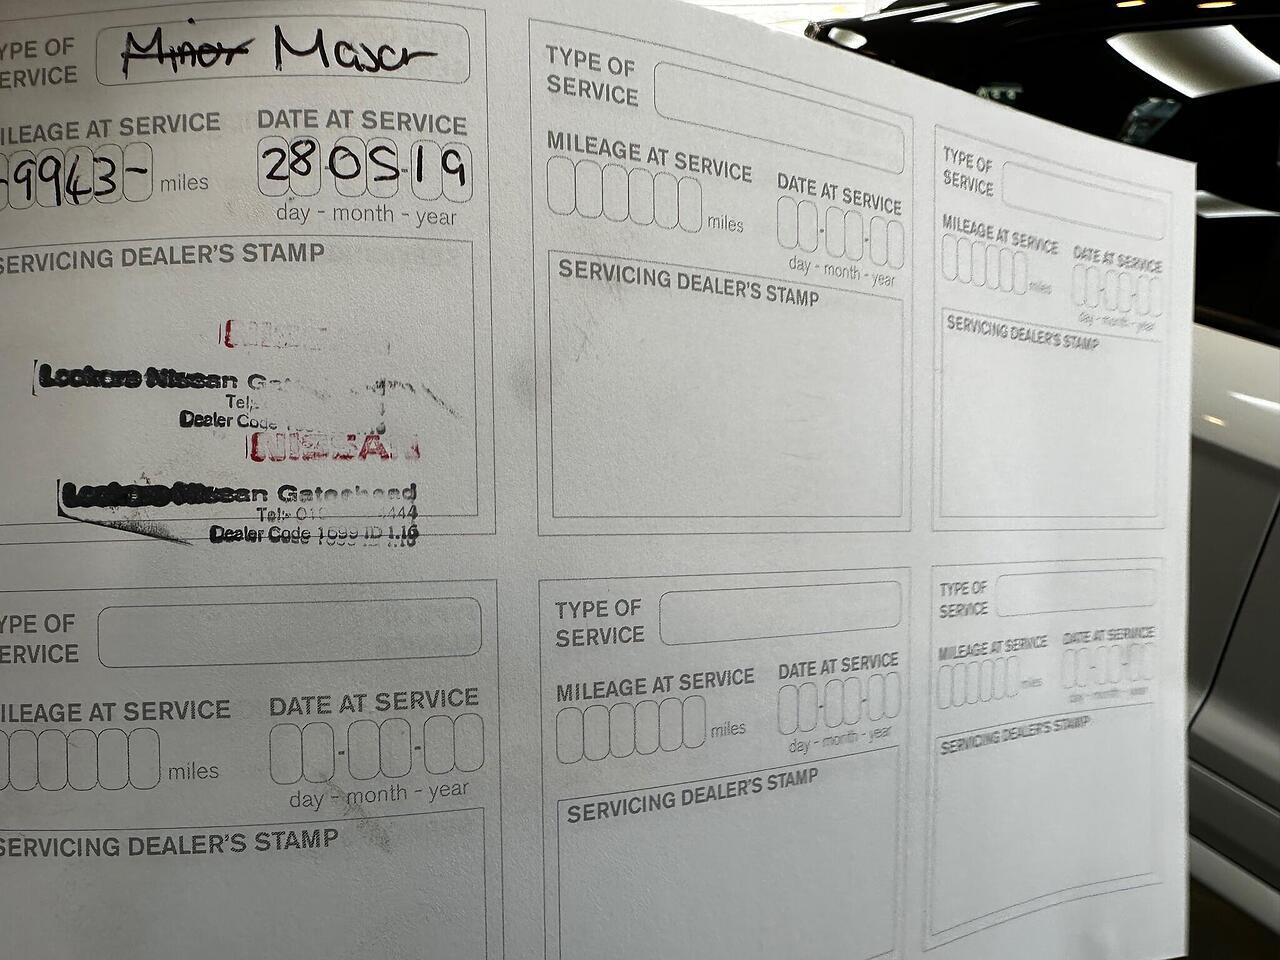 YPE OF
ERVICE
Minor Major
ILEAGE AT SERVICE
-9943- miles
DATE AT SERVICE
28-05-19
day - month - year
SERVICING DEALER'S STAMP
Nissan
Tel:
Dealer Code
NISSAN
Nissan Gateshead
Tel:- 444
Dealer Code 1.16
TYPE OF
SERVICE
MILEAGE AT SERVICE
miles
DATE AT SERVICE
day - month - year
SERVICING DEALER'S STAMP
TYPE OF
SERVICE
MILEAGE AT SERVICE
miles
DATE AT SERVICE
day - month - year
SERVICING DEALER'S STAMP
YPE OF
ERVICE
ILEAGE AT SERVICE
miles
DATE AT SERVICE
day - month - year
SERVICING DEALER'S STAMP
TYPE OF
SERVICE
MILEAGE AT SERVICE
miles
DATE AT SERVICE
day - month - year
SERVICING DEALER'S STAMP
TYPE OF
SERVICE
MILEAGE AT SERVICE
miles
DATE AT SERVICE
day - month - year
SERVICING DEALER'S STAMP